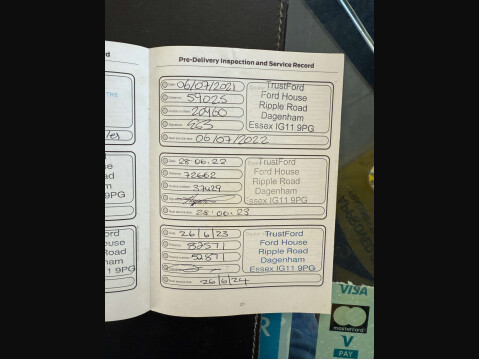 rd
Pre-Delivery Inspection and Service Record
THE
les
06/07/2021
59025
20460
563
06/07/2022
TrustFord
Ford House
Ripple Road
Dagenham
Essex IG11 9PG
e
ouse
oad
am
9PG
28.06.22
72662
37429
28.06.23
TrustFord
Ford House
Ripple Road
Dagenham
Essex IG11 9PG
rd
ouse
Road
ham
1 9PG
26/6/23
82571
52871
26/6/24
TrustFord
Ford House
Ripple Road
Dagenham
Essex IG11 9PG
VISA
mastercard
V
PAY